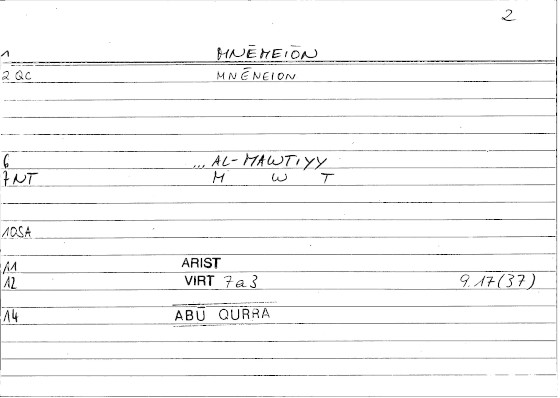 2
1 MNĒMEIŌN
2 QC MNĒNEION
6 ... AL-MAWTIYY
7 NT M W T
10SA
11 ARIST
12 VIRT 7a3 9.17(37)
14 ABŪ QURRA